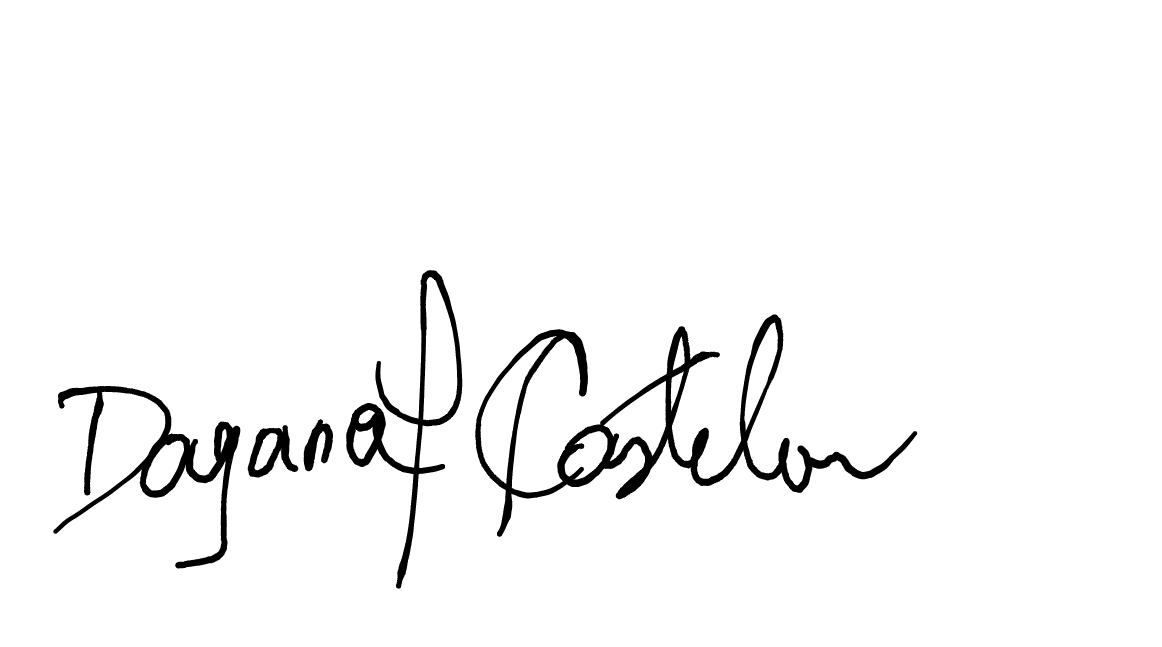 Dayana P Castelon